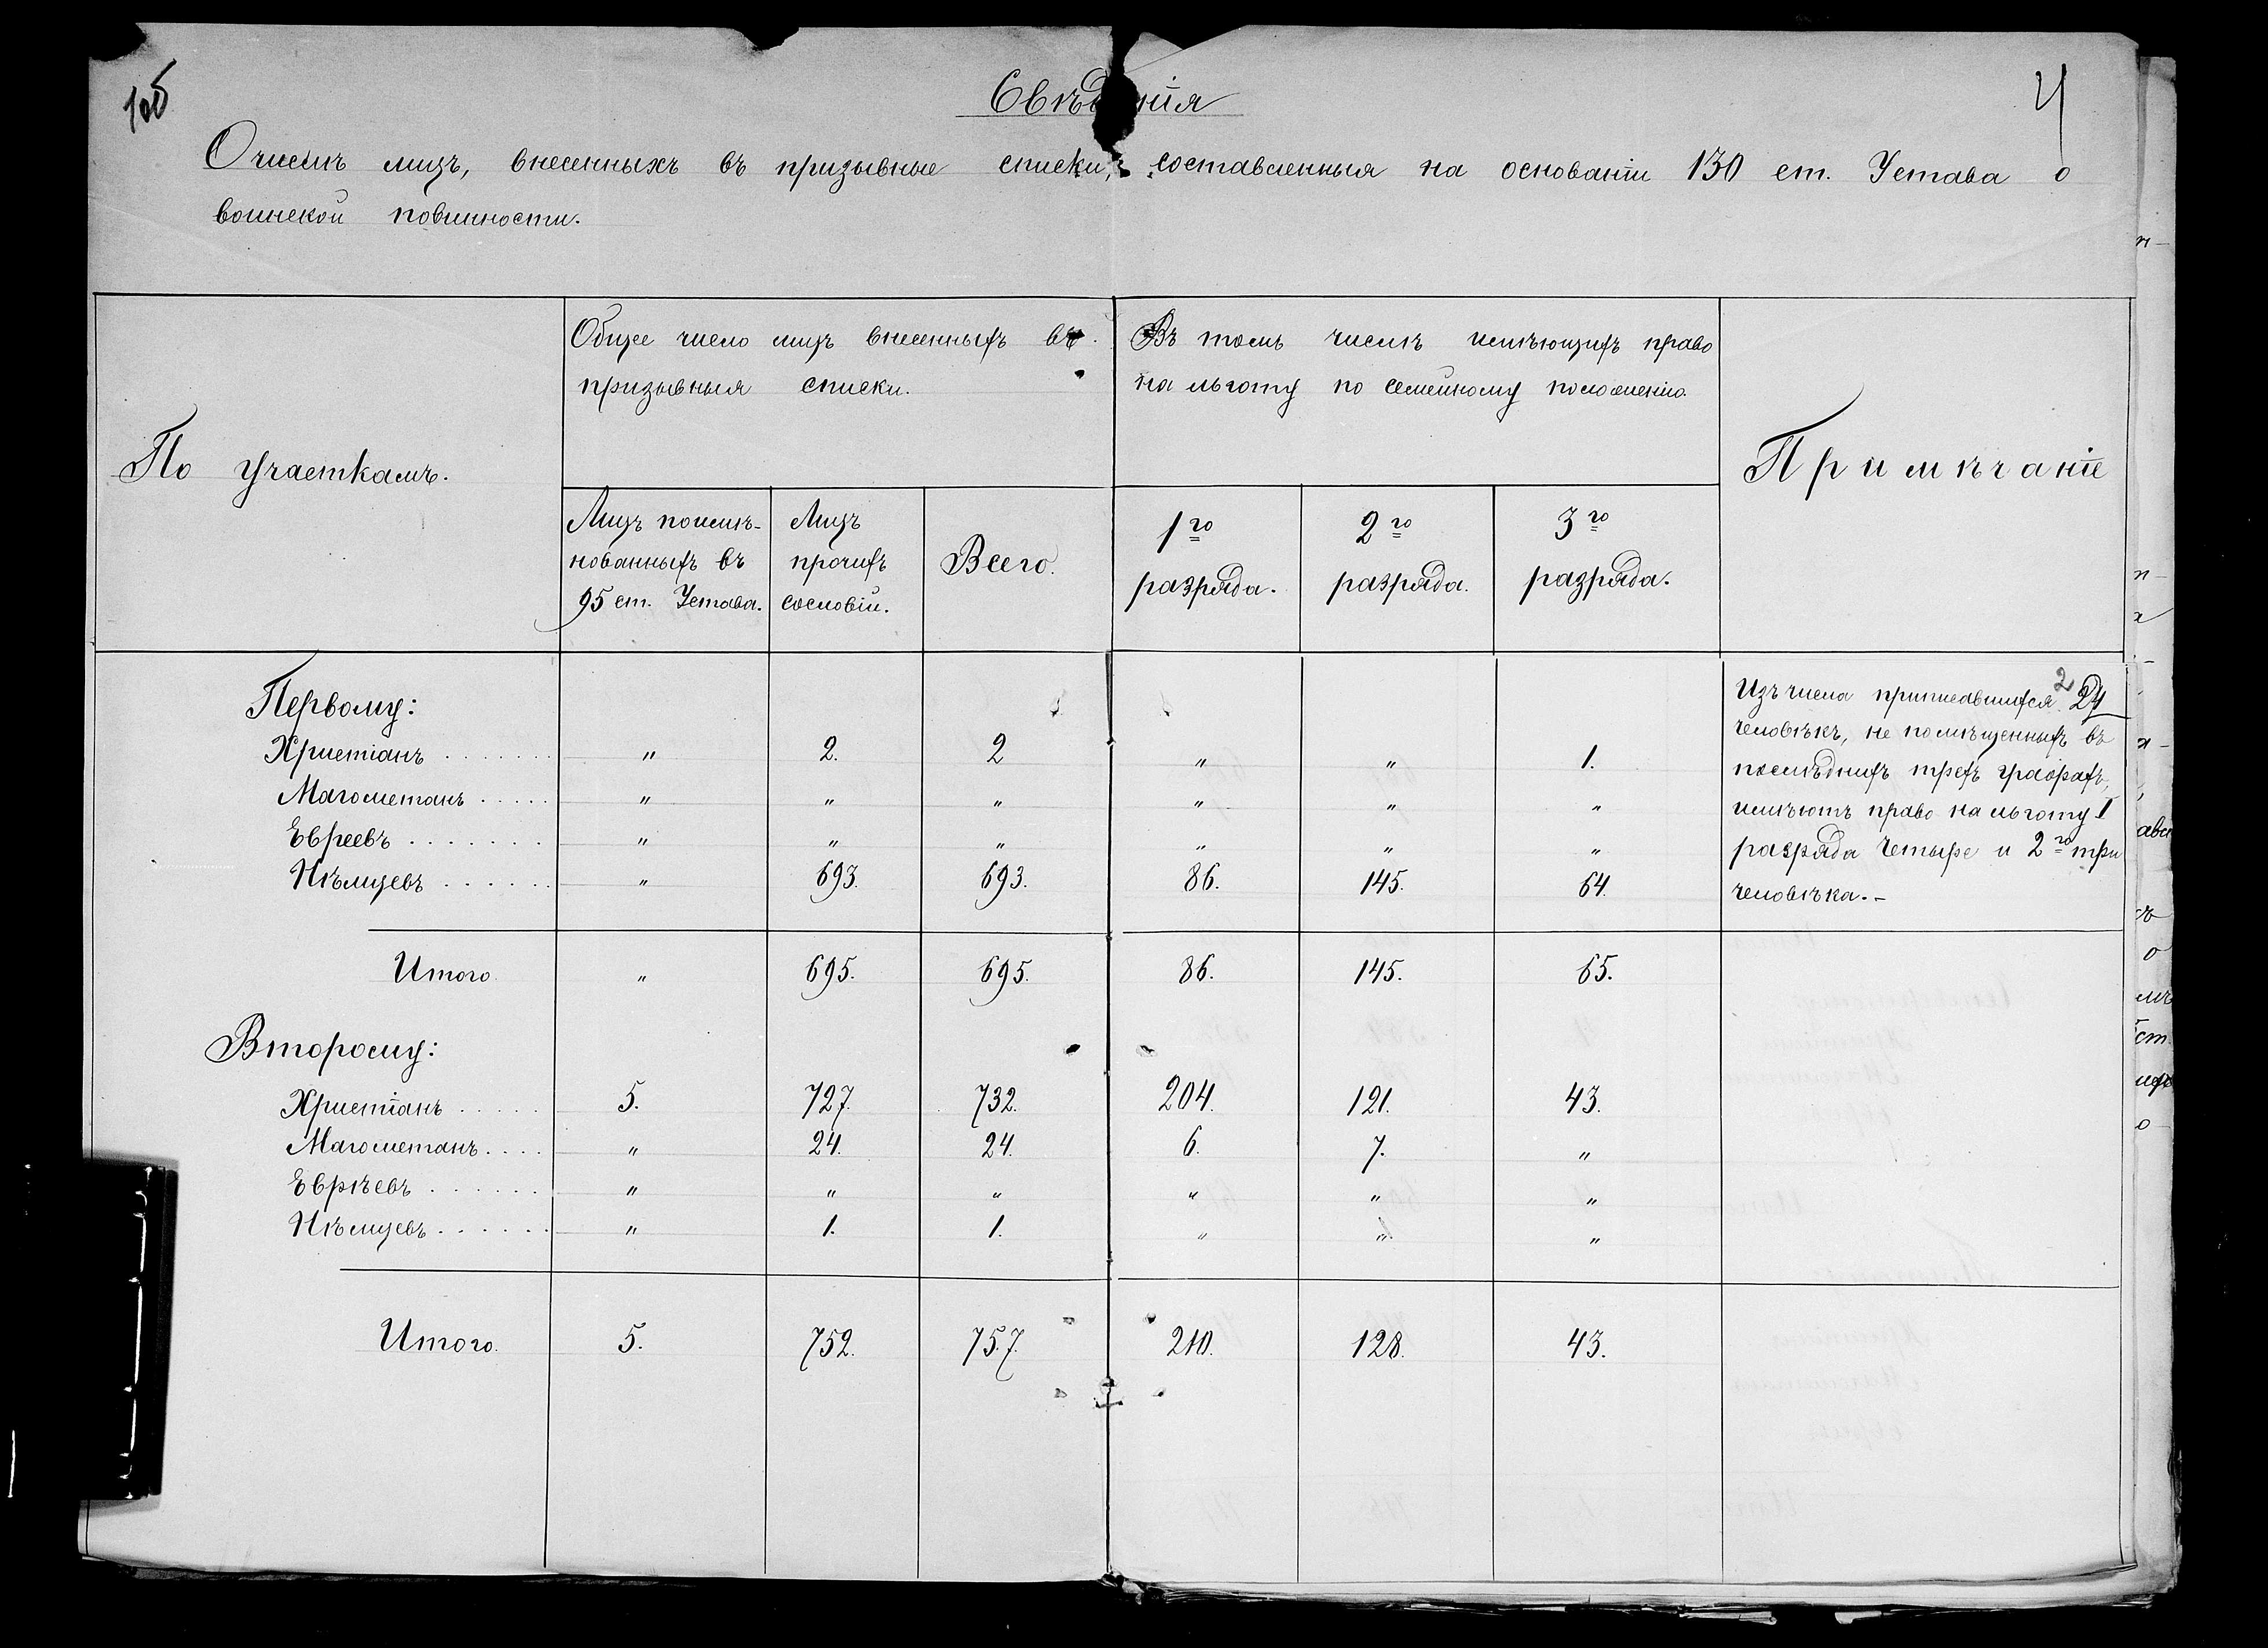 105
4
Свѣдѣнія
О числѣ лицъ, внесенныхъ въ призывные списки, составленныя на основаніи 130 ст. Устава о
воинской повинности.
По участкамъ.
Общее число лицъ внесенныхъ въ
призывныя списки.
Въ томъ числѣ имѣющихъ право
на льготу по семейному положенію.
Примѣчаніе
Лицъ поимѣ-
нованныхъ въ
95 ст. Устава.
Лицъ
прочихъ
сословій.
Всего.
1го
разряда.
2го
разряда.
3го
разряда.
Первому:
Христіанъ . . . . . . . " 2. 2 " " 1.
Магометанъ . . . . . " " " " " "
Евреевъ . . . . . . . " " " " " "
Нѣмцевъ . . . . . . " 693. 693. 86. 145. 64.
Итого " 695. 695. 86. 145. 65.
Изъ числа приписавшихся 2 24
человѣкъ, не помѣщенныхъ въ
послѣднихъ трехъ графахъ,
имѣютъ право на льготу I
разряда четыре и 2го три
человѣка.-
Второму:
Христіанъ . . . . . 5. 727. 732. 204. 121. 43.
Магометанъ . . . . " 24. 24. 6. 7. "
Еврѣевъ . . . . . . " " " " " "
Нѣмцевъ . . . . . . " 1. 1. " " "
Итого. 5. 752. 757. 210. 128. 43.